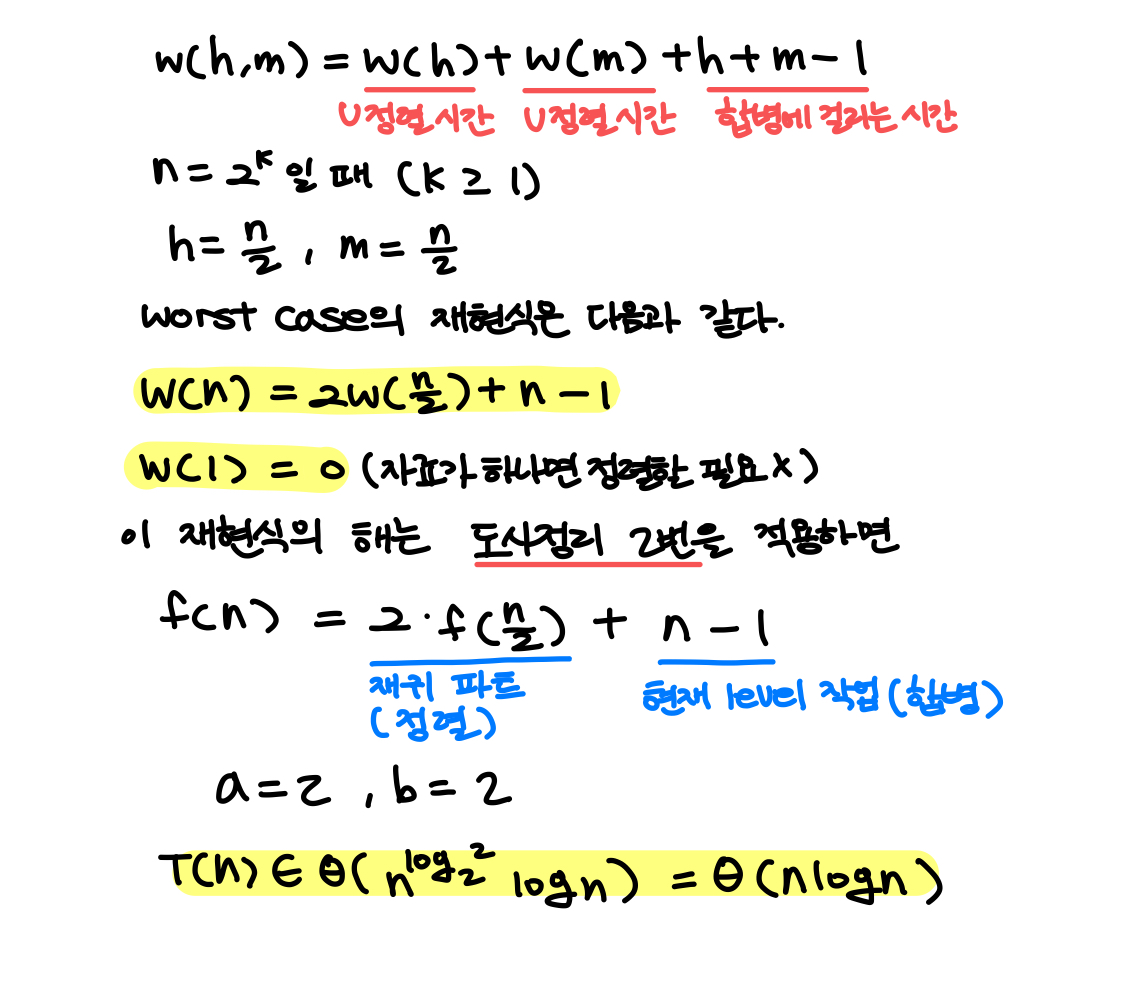 W(h,m) = W(h) + W(m) + h + m - 1
U정렬시간 U정렬시간 합병에 걸리는 시간
n = 2^k 일 때 (K ≥ 1)
h = n/2 , m = n/2
worst case의 재현식은 다음과 같다.
W(n) = 2W(n/2) + n - 1
W(1) = 0 (자료가 하나면 정렬할 필요 X)
이 재현식의 해는 도사정리 2번을 적용하면
f(n) = 2 · f(n/2) + n - 1
재귀 파트 현재 level 작업 (합병)
(정렬)
a = 2 , b = 2
T(n) ∈ θ(n^log₂2 log n) = θ(n log n)